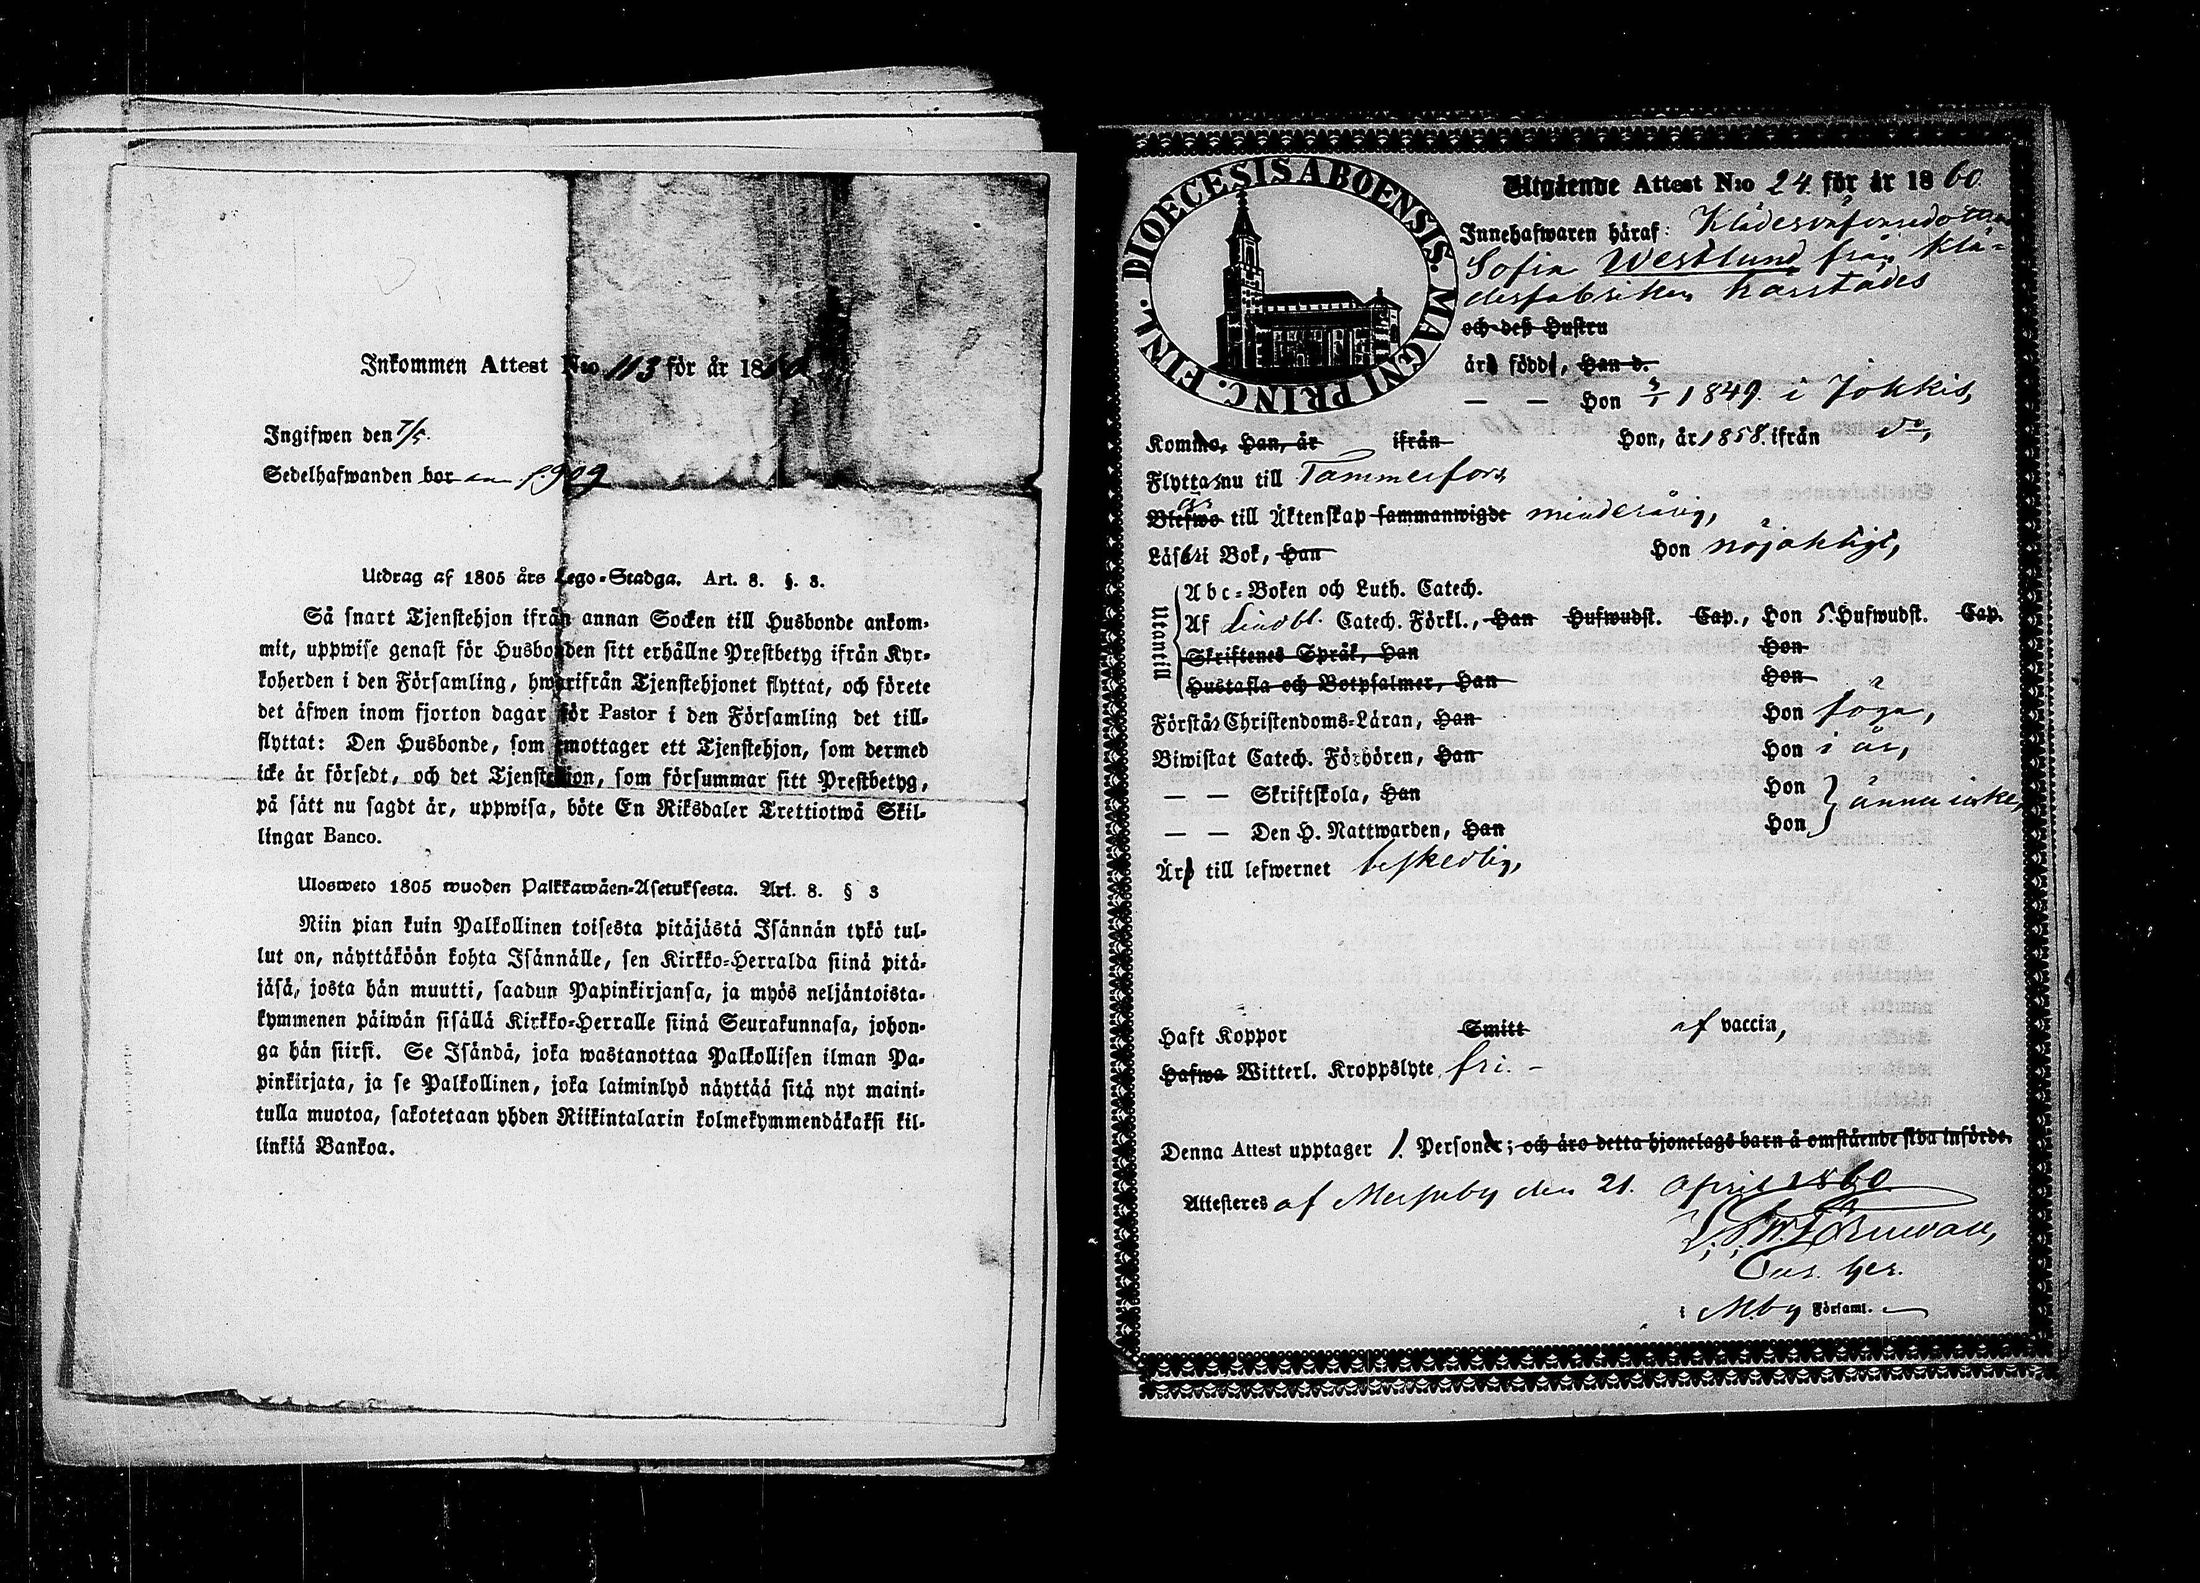 Inkommen Attest N:o 113 för år 1860
Ingifwen den 7/5.
Sedelhafwanden bor p. 909
Utdrag af 1805 års Lego-Stadga. Art. 8. §. 3.
Så snart Tjenstehjon ifrån annan Socken till Husbonde ankom-
mit, uppwise genast för Husbonden sitt erhållne Prestbetyg ifrån Kyr-
koherden i den Församling, hwarifrån Tjenstehjonet flyttat, och förete
det äfwen inom fjorton dagar för Pastor i den Församling det till-
flyttat: Den Husbonde, som emottager ett Tjenstehjon, som dermed
icke är försedt, och det Tjenstehjon, som försummar sitt Prestbetyg,
på sätt nu sagdt är, uppwisa, böte En Riksdaler Trettiotwå Skil-
lingar Banco.
Ulosweto 1805 wuoden Palkkawäen-Asetuksesta. Art. 8. § 3
Niin pian kuin Palkollinen toisesta pitäjästä Isännän tykö tul-
lut on, näyttäköön kohta Isännälle, sen Kirkko-Herralda siinä pitä-
jäsä, josta hän muutti, saadun Papinkirjansa, ja myös neljäntoista-
kymmenen päiwän sisällä Kirkko-Herralle siinä Seurakunnasa, johon-
ga hän siirsi. Se Isändä, joka wastanottaa Palkollisen ilman Pa-
pinkirjata, ja se Palkollinen, joka laiminlyö näyttää sitä nyt maini-
tulla muotoa, sakotetaan yhden Riikintalarin kolmekymmendäkaksi kil-
linkiä Bankoa.
DIOECESIS ABOENSIS. MAGNI PRINC. FINL.
Utgående Attest N:o 24. för år 1860.
Innehafwaren häraf: Klädesväfvaredottren
Sofia Westlund från Klä-
desfabriken härstädes
och deß Hustru
äro födde, Han d.
— — Hon 3/1 1849. i Jokkis,
Kommo, Han, år ifrån Hon, år 1858. ifrån do,
Flytta nu till Tammerfors,
är
Blefwo till Äktenskap sammanwigde minderårig,
Läser i Bok, Han Hon nöjaktigt,
Utantill
Abc-Boken och Luth. Catech.
Af Lindbl. Catech. Förkl., Han Hufwudst. Cap., Hon 5. Hufwudst. Cap.
Skriftenes Språk, Han Hon
Hustafla och Botpsalmer, Han Hon
Förstår Christendoms-Läran, Han Hon föga,
Biwistat Catech. Förhören, Han Hon i år,
— — Skriftskola, Han Hon
ännu icke,
— — Den H. Nattwarden, Han Hon
Äro till lefwernet beskedlig,
Haft Koppor Smitt af vaccin,
Hafwa Witterl. Kroppslyte fri. –
Denna Attest upptager 1. Personer; och äro detta hjonelags barn å omstående sida införde.
Attesteres af Messuby den 21. April 1860
i M:by Församl.